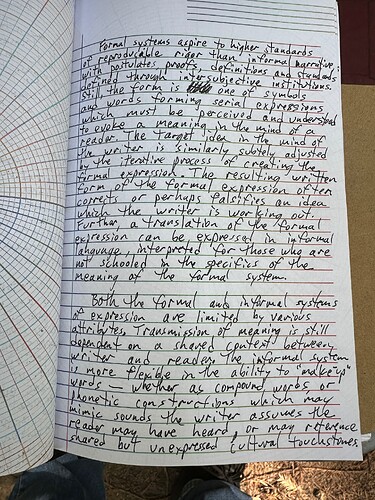 Formal systems aspire to higher standards
of reproducable rigor than informal narrative;
with postulates proofs, definitions and standards
defined through intersubjective institutions.
Still the form is one of symbols
and words forming serial expressions
which must be perceived and understood
to evoke a meaning in the mind of a
reader. The target idea in the mind of
the writer is similarly subtely adjusted
by the iterative process of creating the
formal expression. The resulting written
form of the formal expression often
corrects or perhaps falsifies an idea
which the writer is working out.
Further, a translation of the formal
expression can be expressed in informal
language, interpreted for those who are
not schooled in the specifics of the
meaning of the formal system.
Both the formal and informal systems
of expression are limited by various
attributes. Transmission of meaning is still
dependent on a shared context between
writer and reader. The informal system
is more flexible in the ability to "make up"
words — whether as compound words or
phonetic constructions which may
mimic sounds the writer assumes the
reader may have heard, or may reference
shared but unexpressed cultural touchstones